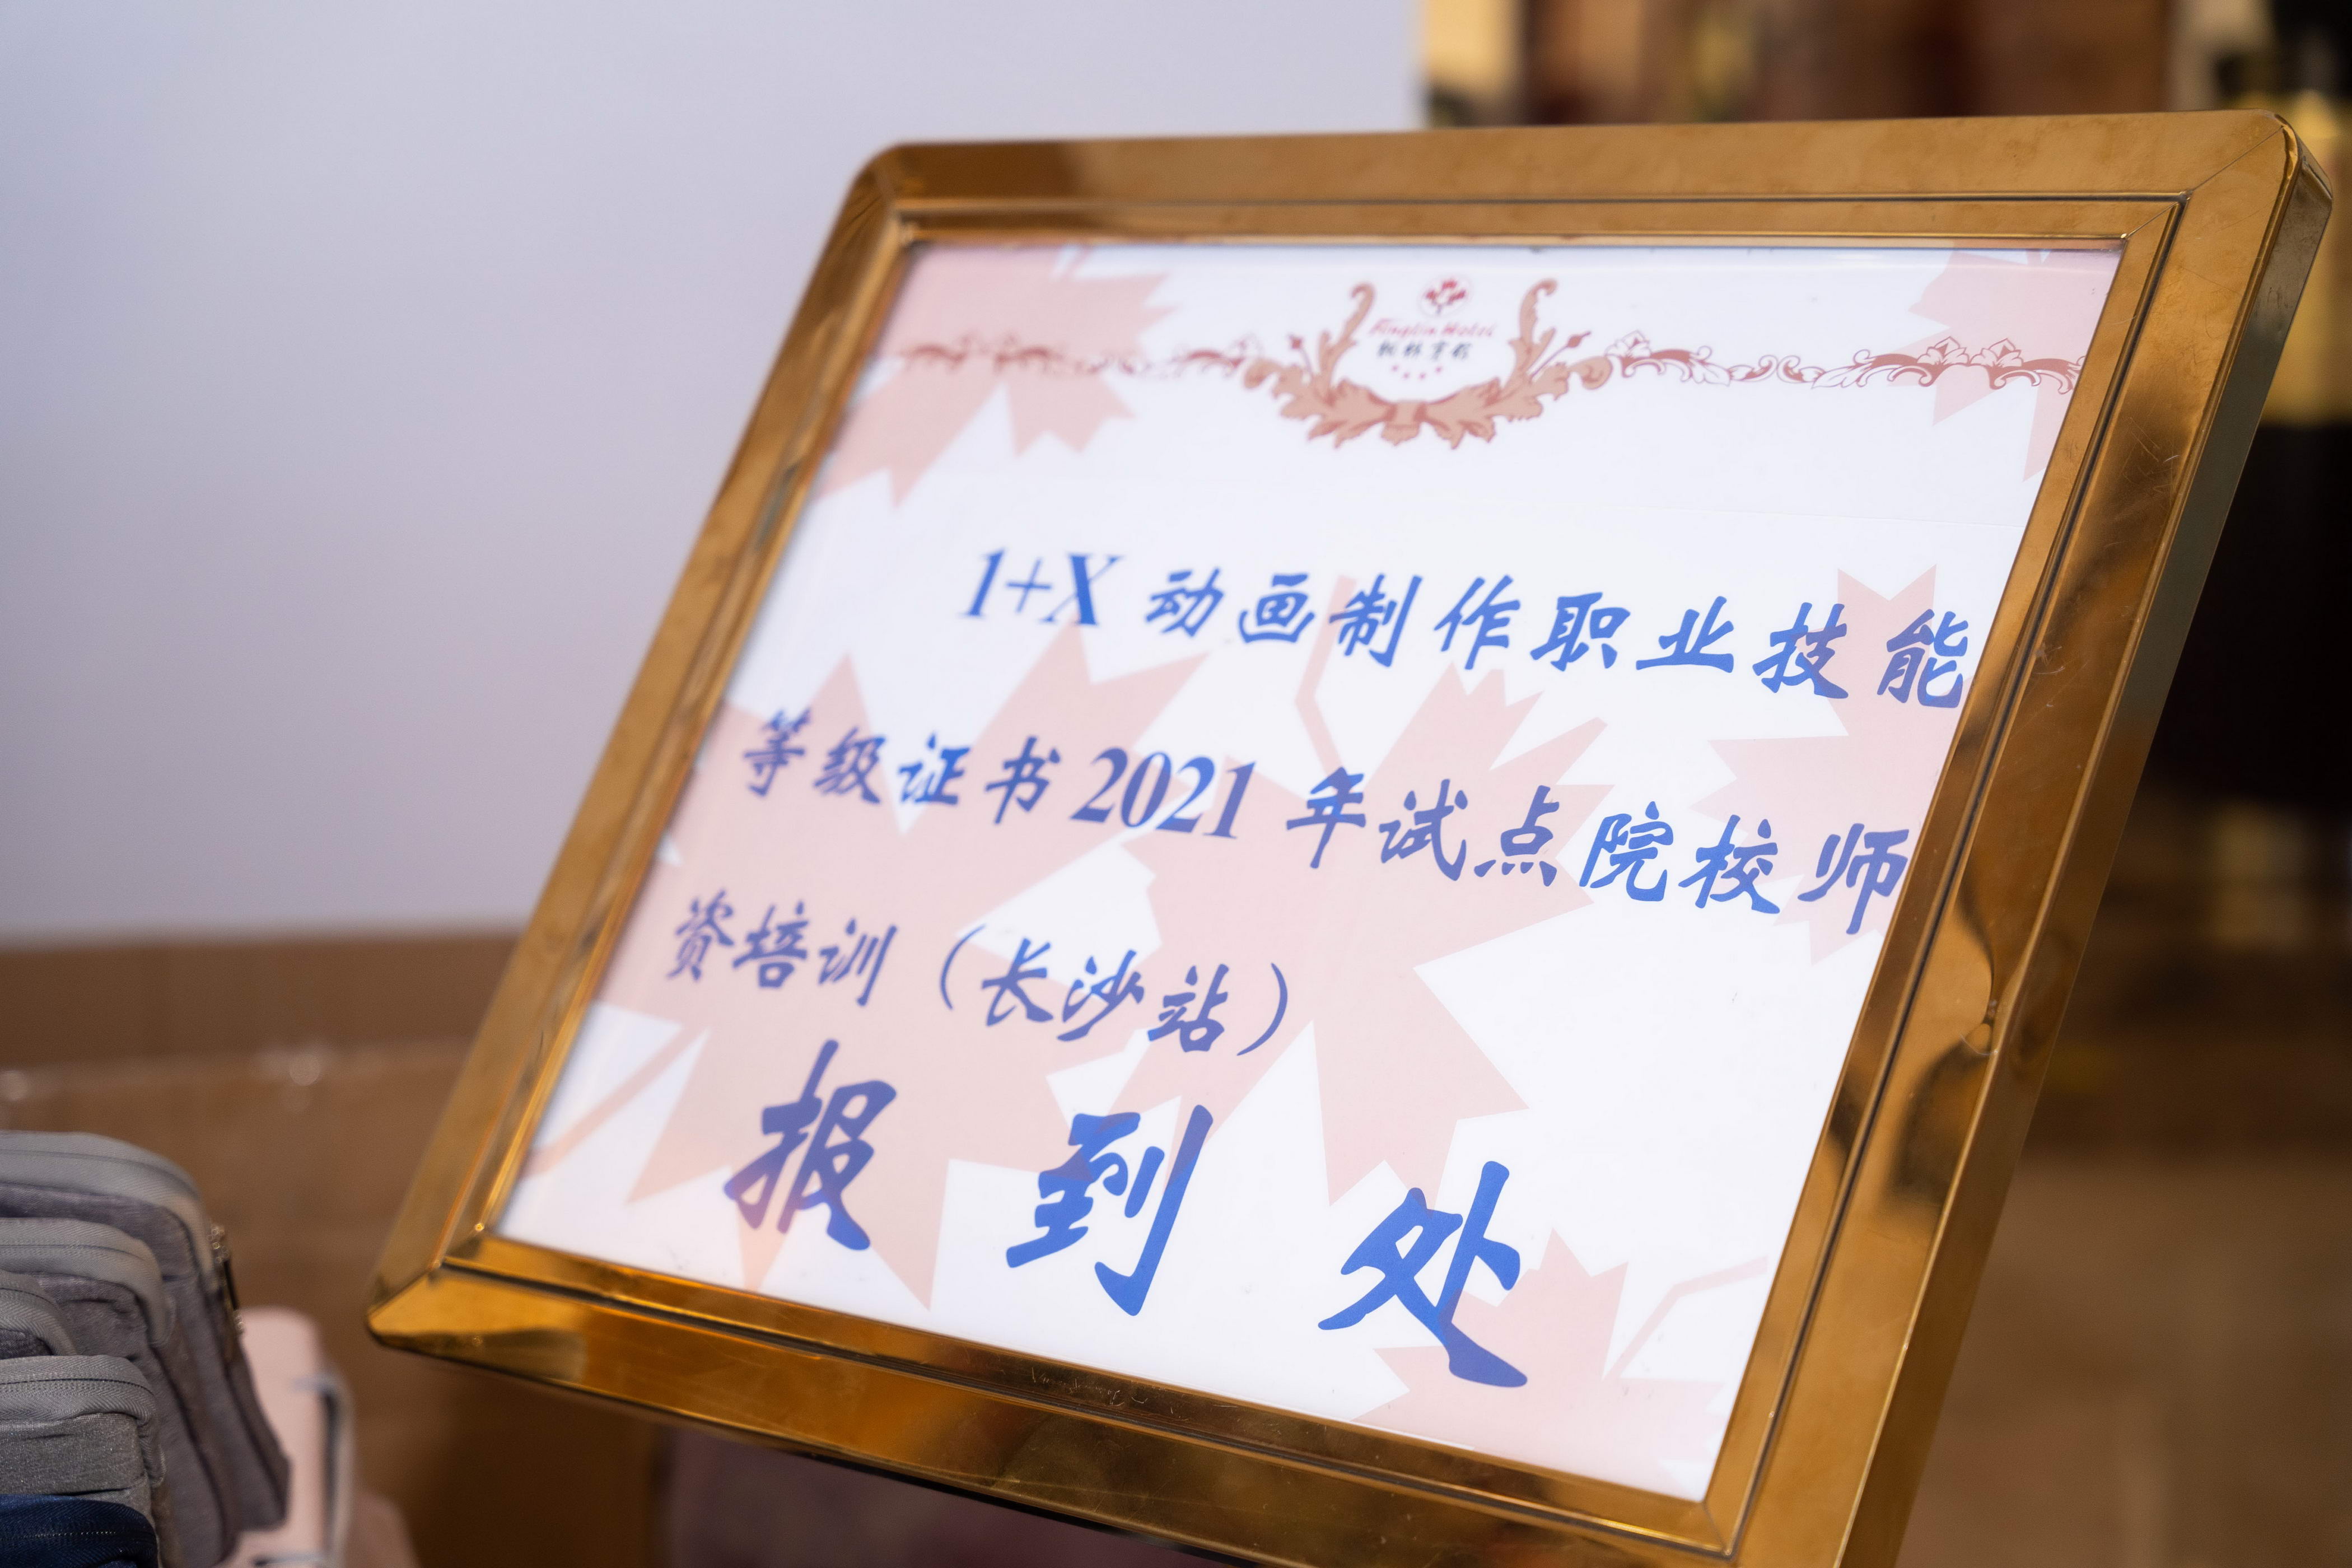 1+X 动画制作职业技能
等级证书 2021 年试点院校师
资培训（长沙站）
报到处